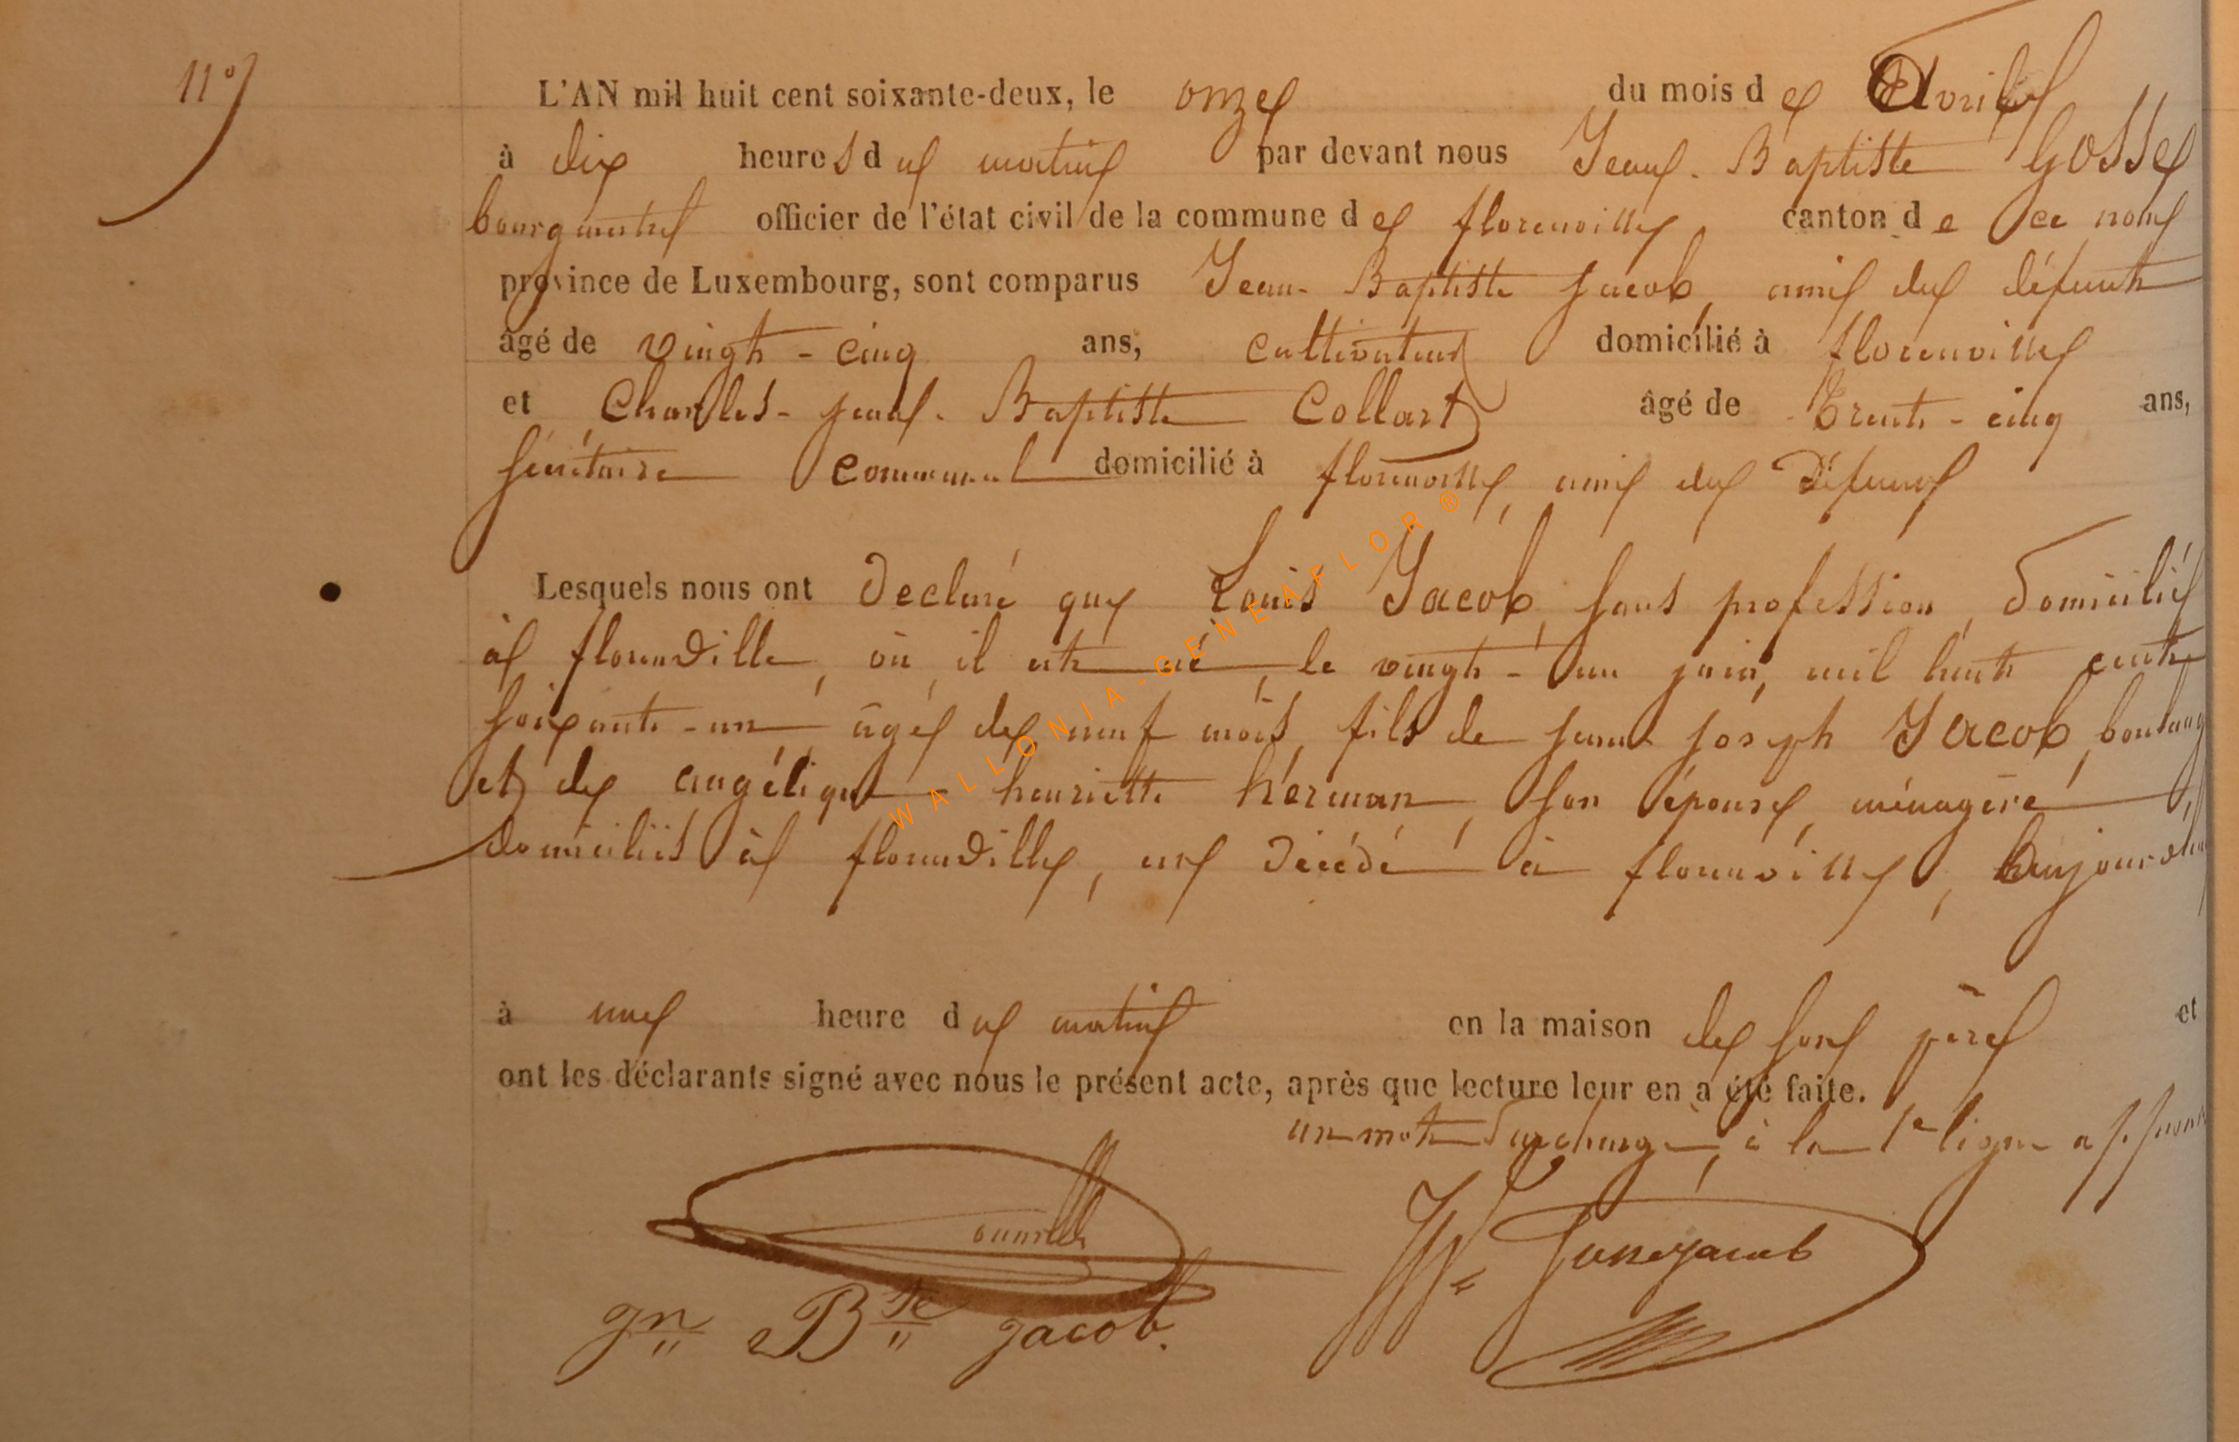 11°
L'AN mil huit cent soixante-deux, le onze du mois de Avril
à dix heures du matin par devant nous Jean-Baptiste Gosse
bourgmestre officier de l'état civil de la commune de florenville canton de ce nom
province de Luxembourg, sont comparus Jean-Baptiste Jacob, ami du défunt
âgé de vingt-cinq ans, cultivateur domicilié à florenville
et Charles-jean-Baptiste Collart âgé de Trente-cinq ans,
sécrétaire communal domicilié à florenville, ami du Défunt
Lesquels nous ont Déclaré que Louis Jacob, sans profession, Domicilié
à florenville, où il est né, le vingt-un juin, mil huit cent
soixante-un âgé de neuf mois, fils de jean joseph Jacob, boulang
et de angélique henriette hérman, son épouse, ménagère,
domiciliés à florenville, est Décédé à florenville, aujourdhui
à une heure du matin en la maison de son père et
ont les déclarants signé avec nous le présent acte, après que lecture leur en a été faite.
un mot surchargé, à la 1e ligne approuvé
Jn Bte Jacob.
WALLONIA-GENEAFLOR®